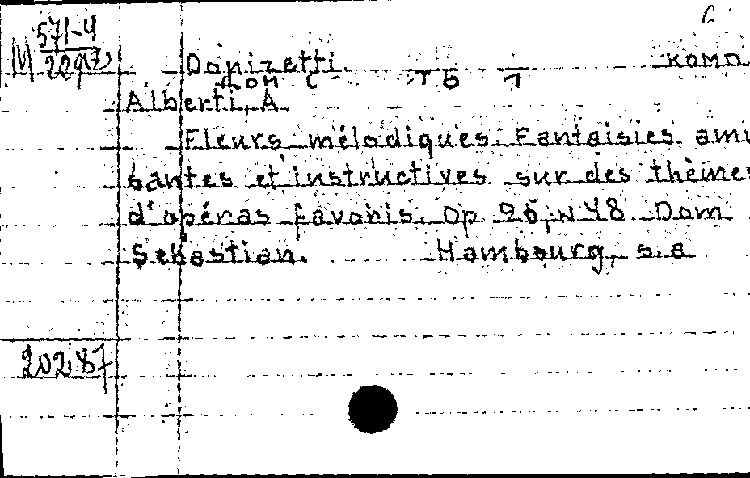 C
M 571-4
22973
Donizetti. комп.
Дом С тб 1
Alberti, A.
Fleurs mélodiques. Fantaisies amu
santes et instructives sur des thèmes
d'opéras favoris. Op 26, N 48. Dom
Sebastian. Hambourg, s.a
20287